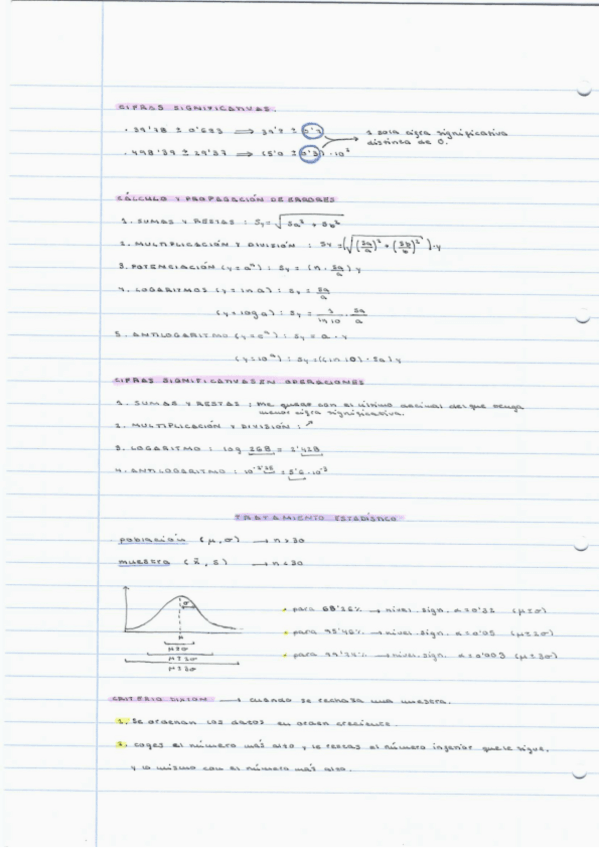 CIFRAS SIGNIFICATIVAS.
· 39'78 ± 0'683 ⟹ 39'7 ± 0'7 1 sola cifra significativa
· 498'39 ± 29'37 ⟹ (5'0 ± 0'3)·10² distinta de 0.
CÁLCULO Y PROPAGACIÓN DE ERRORES
1. SUMAS Y RESTAS : Sy = √(Sa² + Sb²)
2. MULTIPLICACIÓN Y DIVISIÓN : Sy = (√((Sa/a)² + (Sb/b)²))·y
3. POTENCIACIÓN (y = aⁿ) : Sy = (n · Sa/a) y
4. LOGARITMOS (y = ln a) : Sy = Sa/a
(y = log a) : Sy = 1/ln 10 · Sa/a
5. ANTILOGARITMO (y = eᵃ) : Sy = a · y
(y = 10ᵃ) : Sy = ((ln 10) · Sa) y
CIFRAS SIGNIFICATIVAS EN OPERACIONES
1. SUMAS Y RESTAS : me quedo con el último decimal del que tenga
menor cifra significativa.
2. MULTIPLICACIÓN Y DIVISIÓN : ↗
3. LOGARITMO : log 268 = 2'428
4. ANTILOGARITMO : = 5'6 · 10⁻³
TRATAMIENTO ESTADÍSTICO
población (μ, σ) → n > 30
muestra (x̄, s) → n < 30
σ
μ
μ ± σ
μ ± 2σ
μ ± 3σ
· para 68'26% → nivel sign. (μ ± σ)
· para 95'45% → nivel sign. α = 0'05 (μ ± 2σ)
· para → nivel sign. (μ ± 3σ)
CRITERIO DIXION → cuando se rechaza una muestra.
1. Se ordenan los datos en orden creciente.
2. coges el número más alto y le restas el número inferior que le sigue,
y lo mismo con el número más alto.